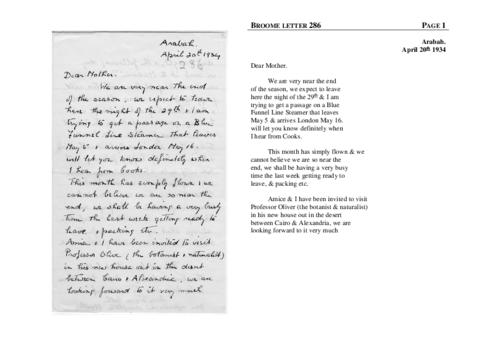 Arabah.
April 20th 1934
286
Dear Mother.
We are very near the end
of the season, we expect to leave
here the night of the 29th & I am
trying to get a passage on a Blue
Funnel Line Steamer that leaves
May 5 & arrives London May 16.
will let you know definitely when
I hear from Cooks.
This month has simply flown & we
cannot believe we are so near the
end, we shall be having a very busy
time the last week getting ready to
leave, & packing etc.
Amice & I have been invited to visit
Professor Oliver (the botanist & naturalist)
in his new house out in the desert
between Cairo & Alexandria, we are
looking forward to it very much
BROOME LETTER 286 PAGE 1
Arabah.
April 20th 1934
Dear Mother.
We are very near the end
of the season, we expect to leave
here the night of the 29th & I am
trying to get a passage on a Blue
Funnel Line Steamer that leaves
May 5 & arrives London May 16.
will let you know definitely when
I hear from Cooks.
This month has simply flown & we
cannot believe we are so near the
end, we shall be having a very busy
time the last week getting ready to
leave, & packing etc.
Amice & I have been invited to visit
Professor Oliver (the botanist & naturalist)
in his new house out in the desert
between Cairo & Alexandria, we are
looking forward to it very much